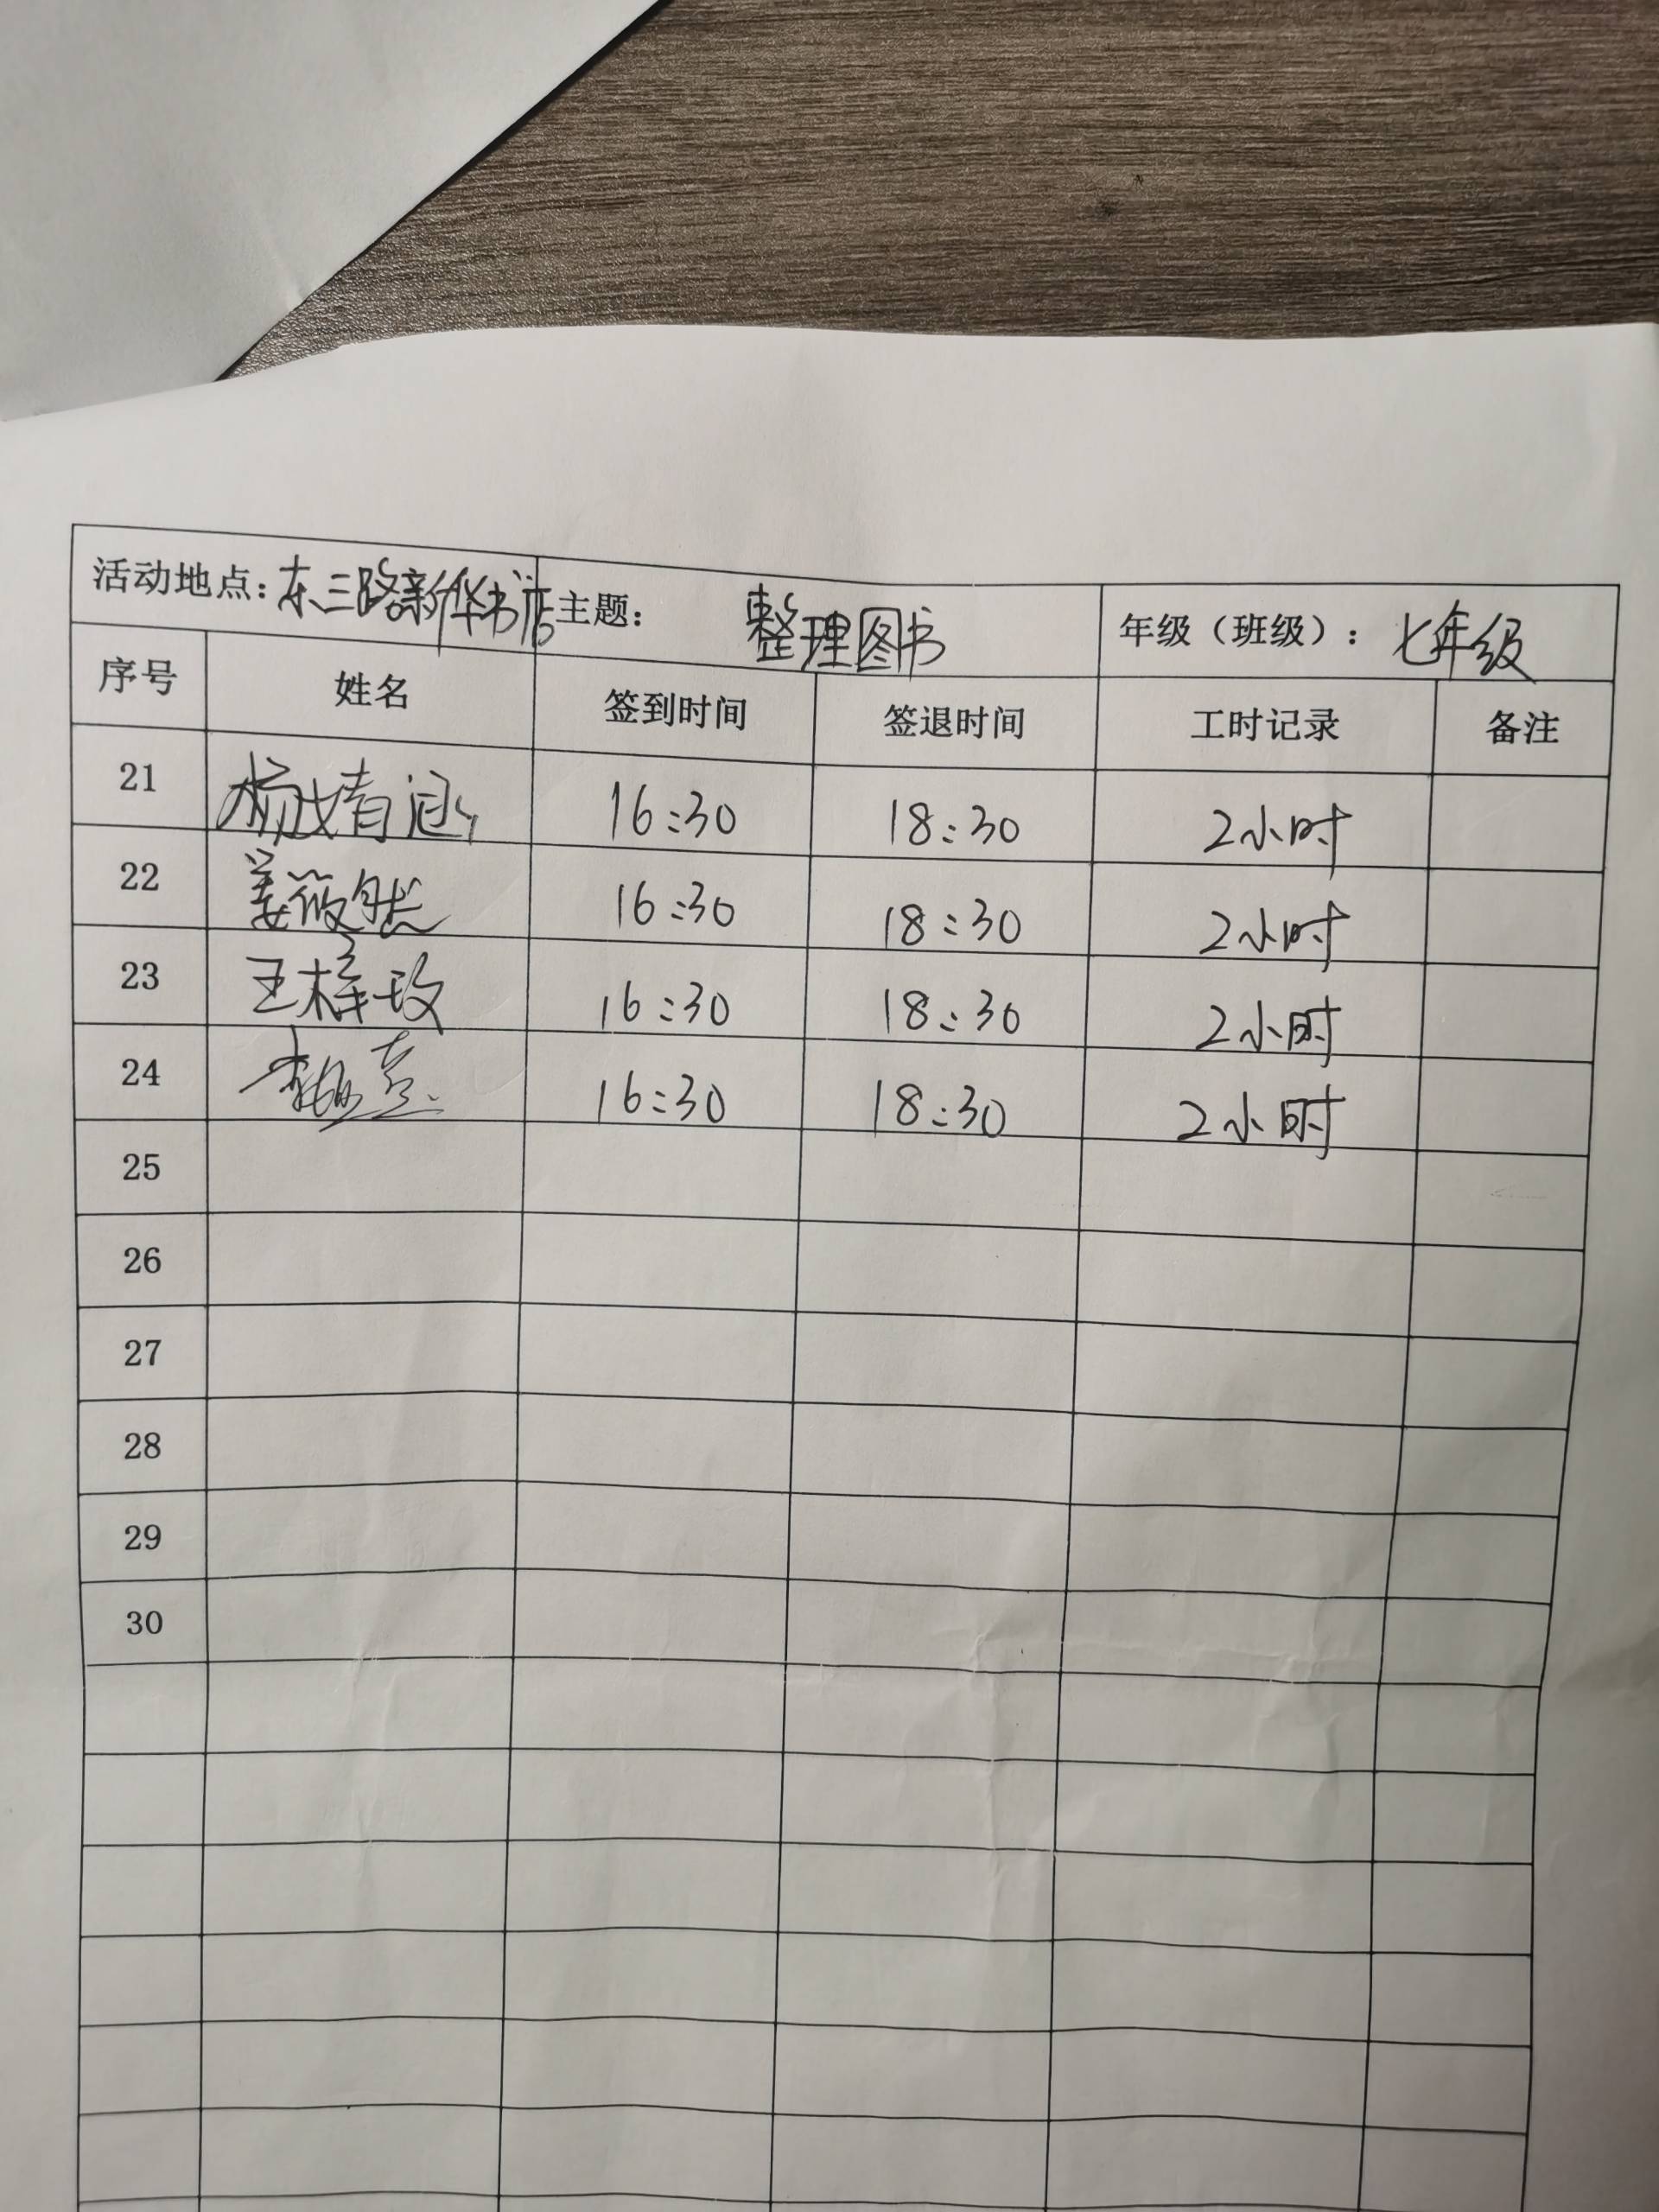 活动地点：东三路新华书店 主题： 整理图书 年级（班级）：七年级
序号 姓名 签到时间 签退时间 工时记录 备注
21 杨婧涵 16:30 18:30 2小时
22 姜筱然 16:30 18:30 2小时
23 王梓玫 16:30 18:30 2小时
24 16:30 18:30 2小时
25
26
27
28
29
30